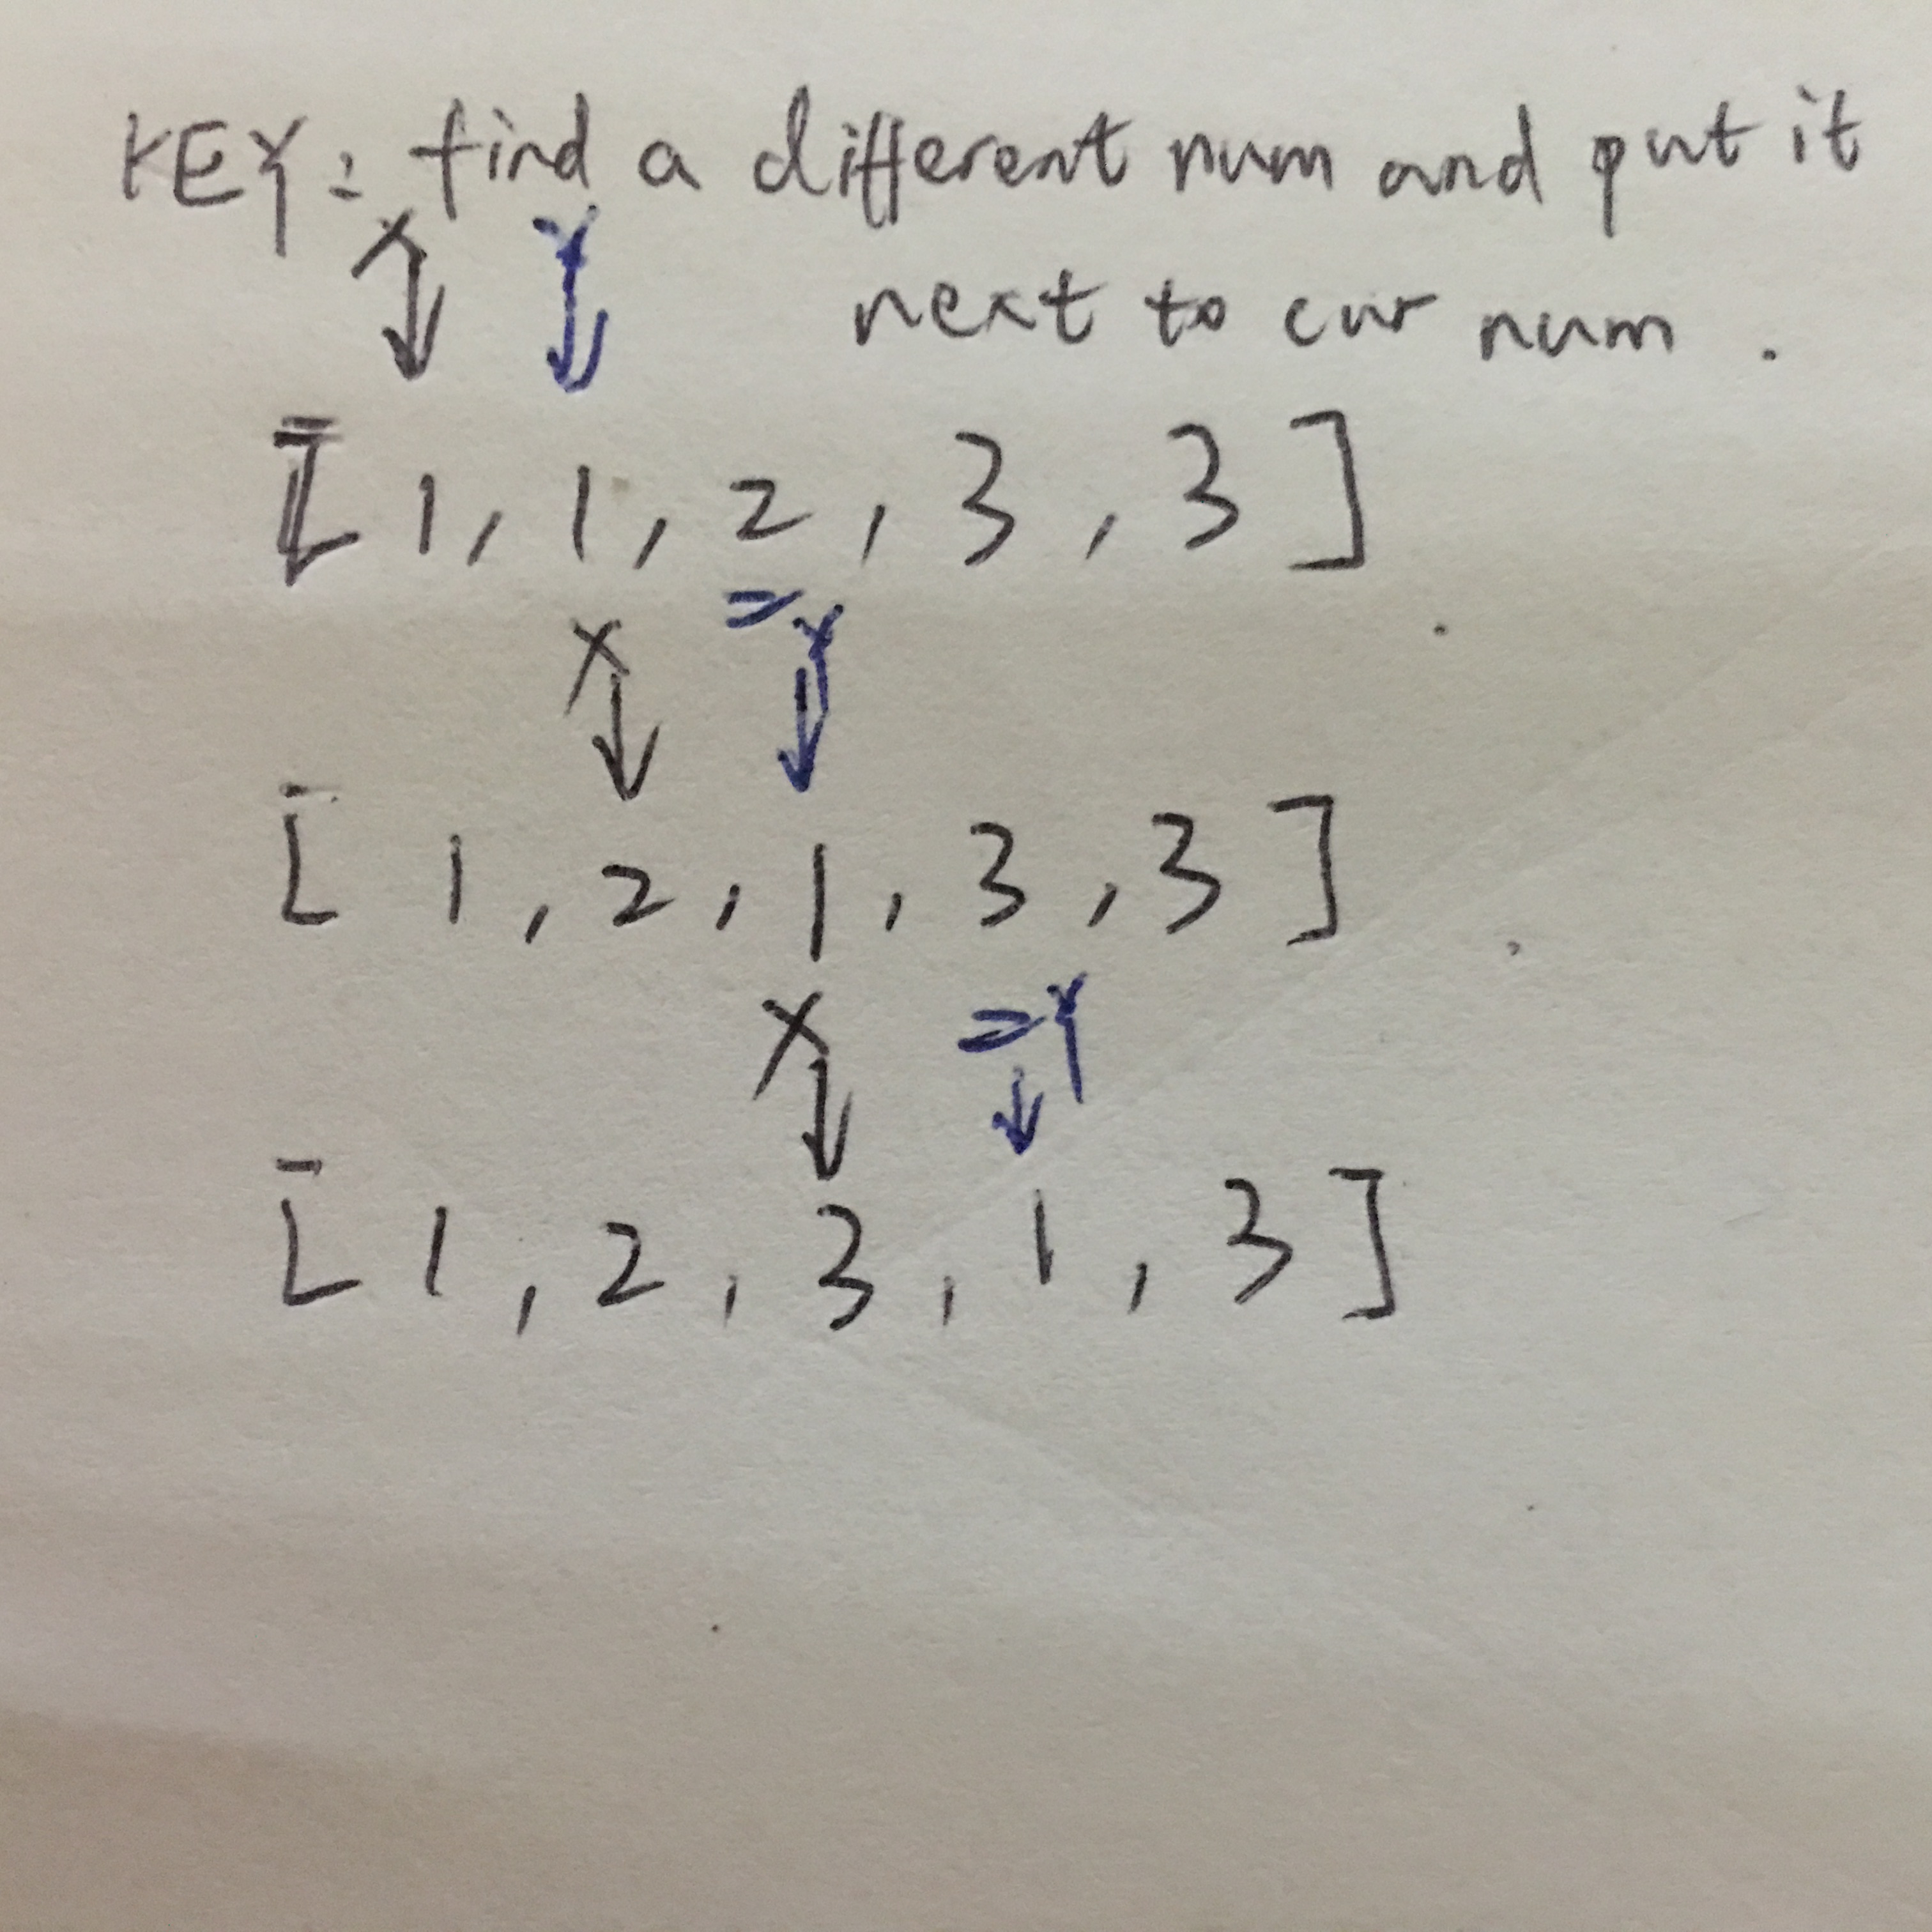 KEY: find a different num and put it
next to cur num.
x y
[1, 1, 2, 3, 3]
x y
[1, 2, 1, 3, 3]
x y
[1, 2, 3, 1, 3]